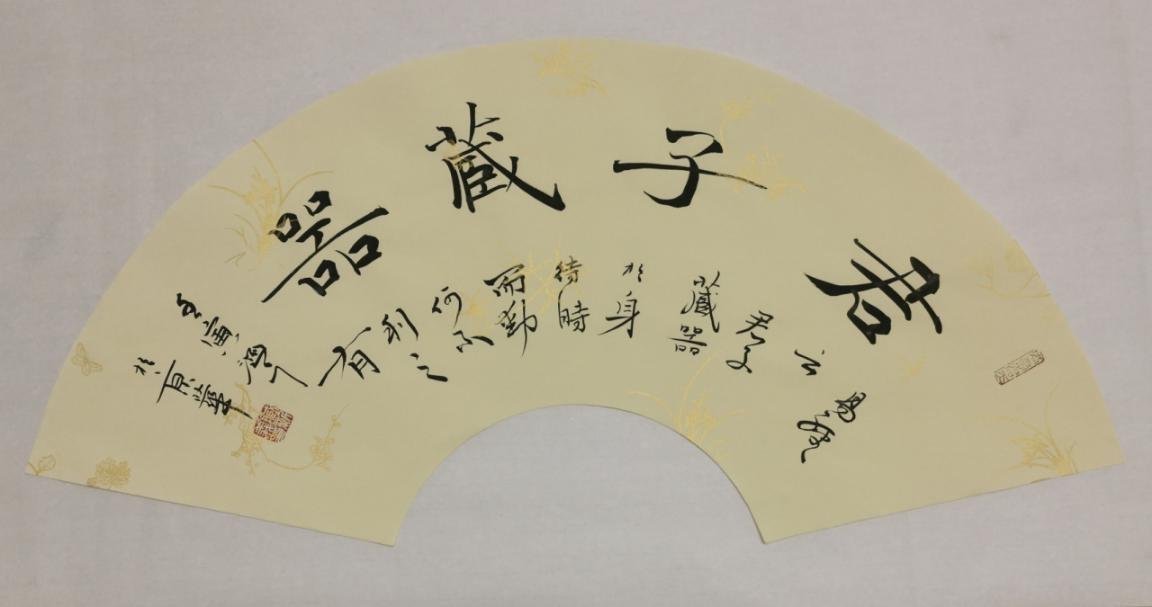 君子藏器
易經
云
君子
藏器
於身
待時
而動
何不
利之
有
寅
於京華